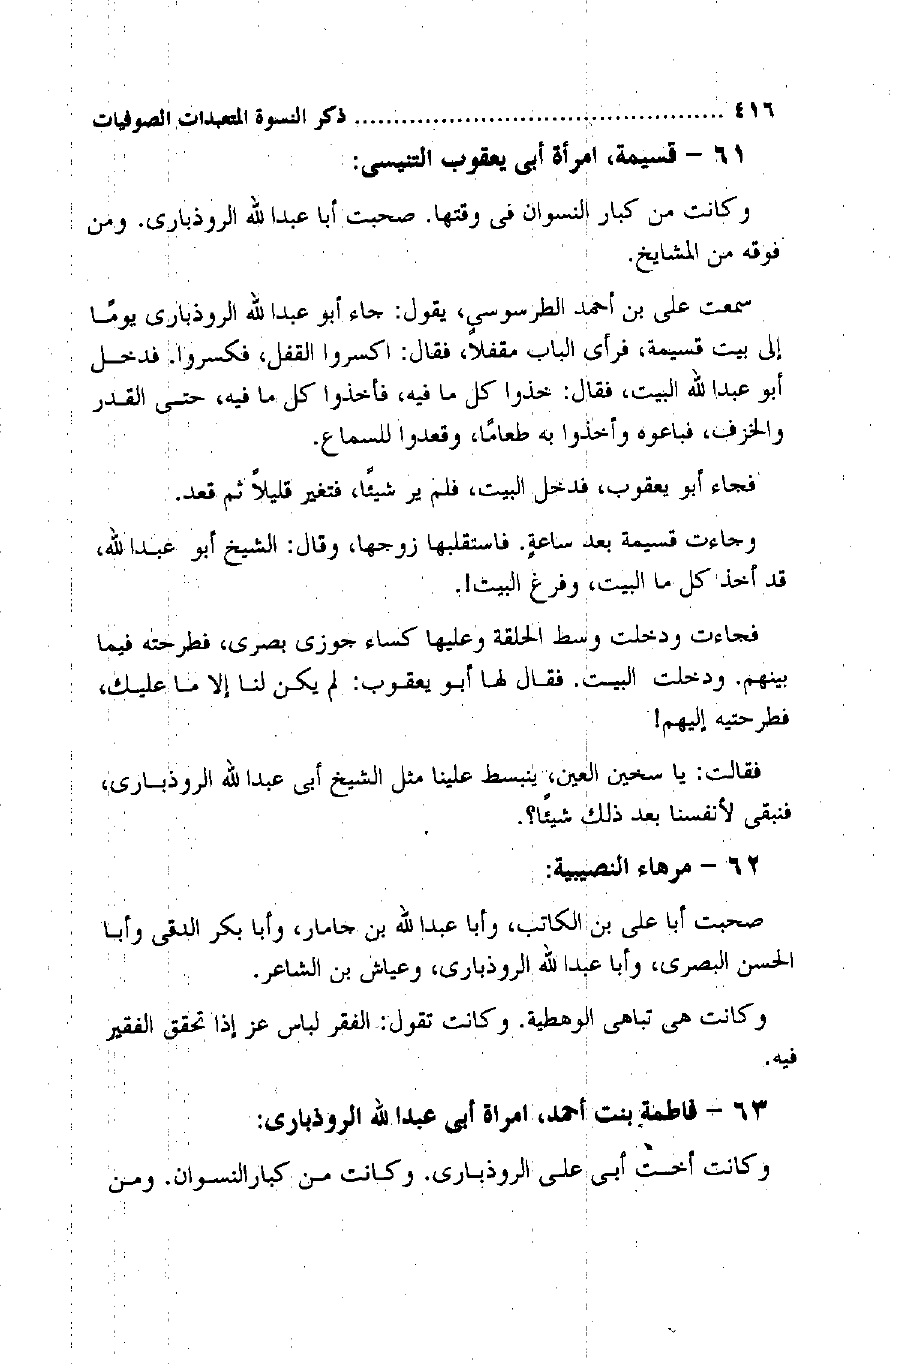 ٤١٦ ........................................................ ذكر النسوة المتعبدات الصوفيات
٦١ – قسيمة، امرأة أبى يعقوب التنيسى:
وكانت من كبار النسوان فى وقتها. صحبت أبا عبدا لله الروذبارى. ومن
فوقه من المشايخ.
سمعت على بن أحمد الطرسوسي، يقول: جاء أبو عبدا لله الروذبارى يومًـا
إلى بيت قسيمة، فرأى الباب مقفلاً، فقال: اكسروا القفل، فكسروا. فدخـل
أبو عبدا لله البيت، فقال: خذوا كل ما فيه، فأخذوا كل ما فيه، حتـى القـدر
والخزف، فباعوه وأخذوا به طعامًا، وقعدوا للسماع.
فجاء أبو يعقوب، فدخل البيت، فلم ير شيئًا، فتغير قليلاً ثم قعد.
وجاءت قسيمة بعد ساعةٍ. فاستقلبها زوجها، وقال: الشيخ أبو عبـدا لله،
قد أخذ كل ما البيت، وفرغ البيت!.
فجاءت ودخلت وسط الحلقة وعليها كساء جوزى بصرى، فطرحته فيما
بينهم. ودخلت البيـت. فقـال لهـا أبـو يعقـوب: لم يكـن لنـا إلا مـا عليـك،
فطرحتيه إليهم!
فقالت: يا سخين العين، ينبسط علينا مثل الشيخ أبى عبدا لله الروذبـارى،
فنبقى لأنفسنا بعد ذلك شيئًا؟.
٦٢ – مرهاء النصيبية:
صحبت أبا على بن الكاتب، وأبا عبدا لله بن جامار، وأبا بكر الدقى وأبـا
الحسن البصرى، وأبا عبدا لله الروذبارى، وعياش بن الشاعر.
وكانت هى تباهى الوهطية. وكانت تقول: الفقر لباس عز إذا تحقق الفقير
فيه.
٦٣ – فاطمة بنت أحمد، امراة أبى عبدا لله الروذبارى:
وكانت أخـت أبـى علـى الروذبـارى. وكـانت مـن كبارالنسـوان. ومـن